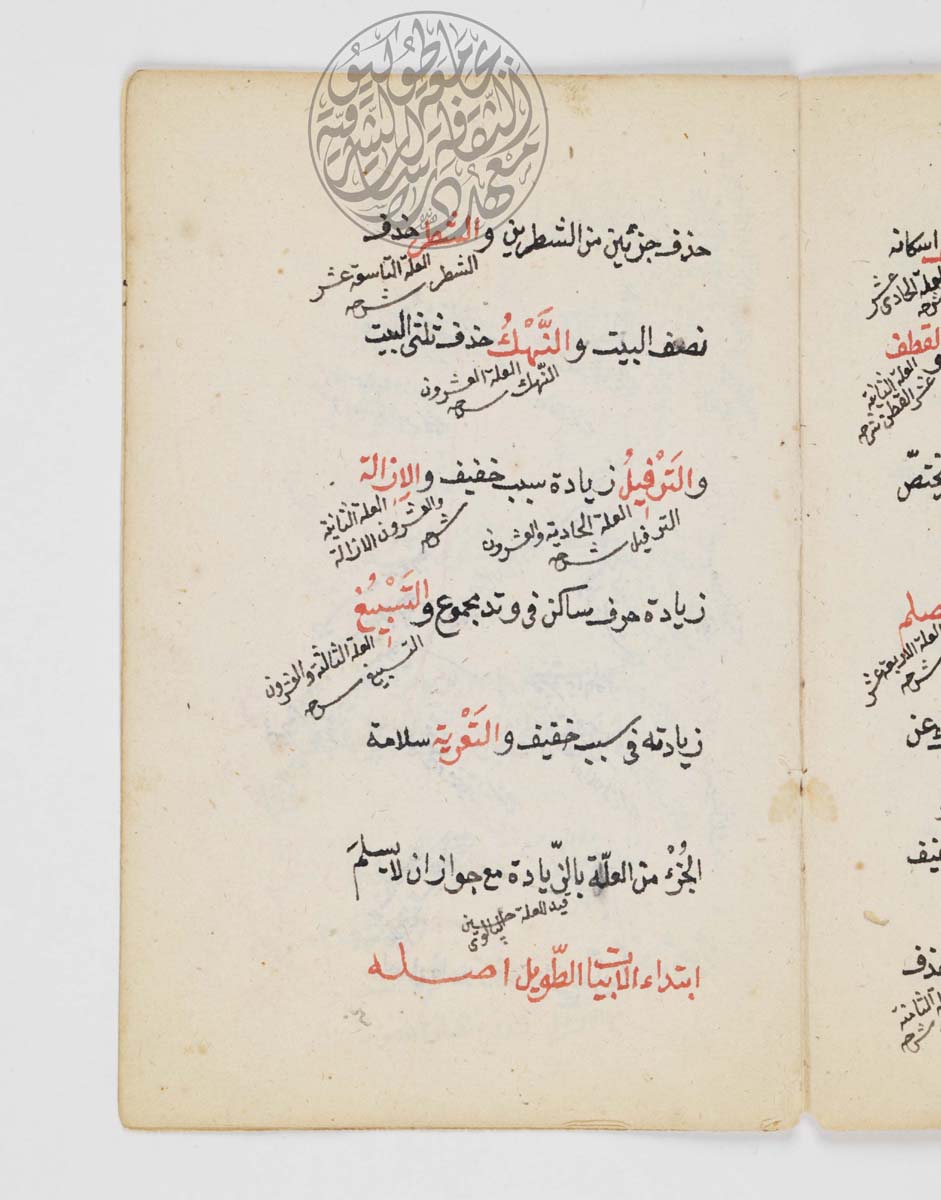 حذف جزئين من الشطرين والشطر حذف
الشطر العلة التاسعة عشر
شرحه
نصف البيت والنَّهْكُ حذف ثلثى البيت
النهك العلة العشرون
شرحه
والتَرْفِيلُ زيادة سبب خفيف والاِزالة
الترفيل العلة الحادية والعشرون
شرحه
العلة الثانية
والعشرون الازالة
شرحه
زيادة حرف ساكن فى وتد مجموع والتَسْبِيْغُ
التسبيغ العلة الثالثة والعشرون
شرحه
زيادته فى سبب خفيف والتَعْرِية سلامة
الجُزْء من العلّة بالزّيادة مع جواز ان لا يسلمَ
قيد للعلة
ابتداء الابيات الطّويل اصله
اسكانه
العلة الحادى عشر
شرحه
القطف
العلة الثانية
عشر القطف شرحه
يختصّ
صلم
العلة الاربعة عشر
شرحه
عن
حذف
الثامنة
شرحه